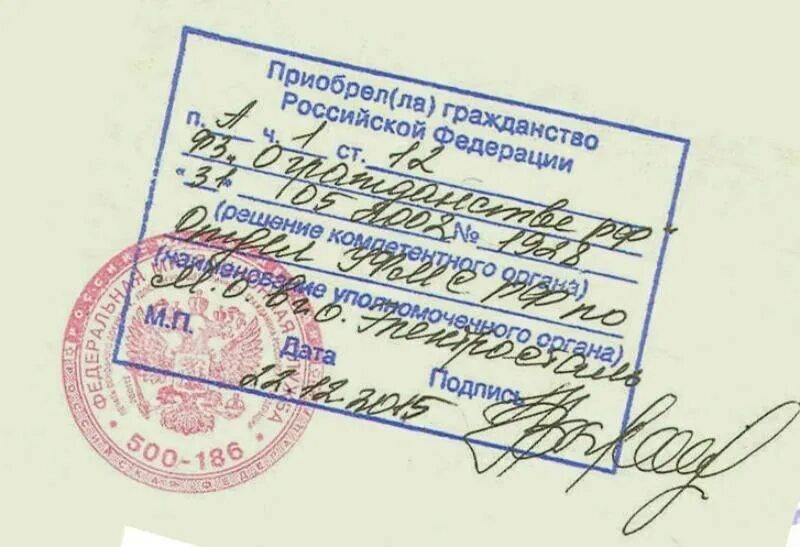 Приобрел(ла) гражданство
Российской Федерации
п. А ч. 1 ст. 12
ФЗ "О гражданстве РФ"
"31" 05 2002 № 1928
(решение компетентного органа)
Отдел УФМС РФ по
(наименование уполномоченного органа)
М.О. в г.о. Электросталь
М.П.
Дата
Подпись
22.12.2015
ФЕДЕРАЛЬНАЯ МИГРАЦИОННАЯ СЛУЖБА
500-186